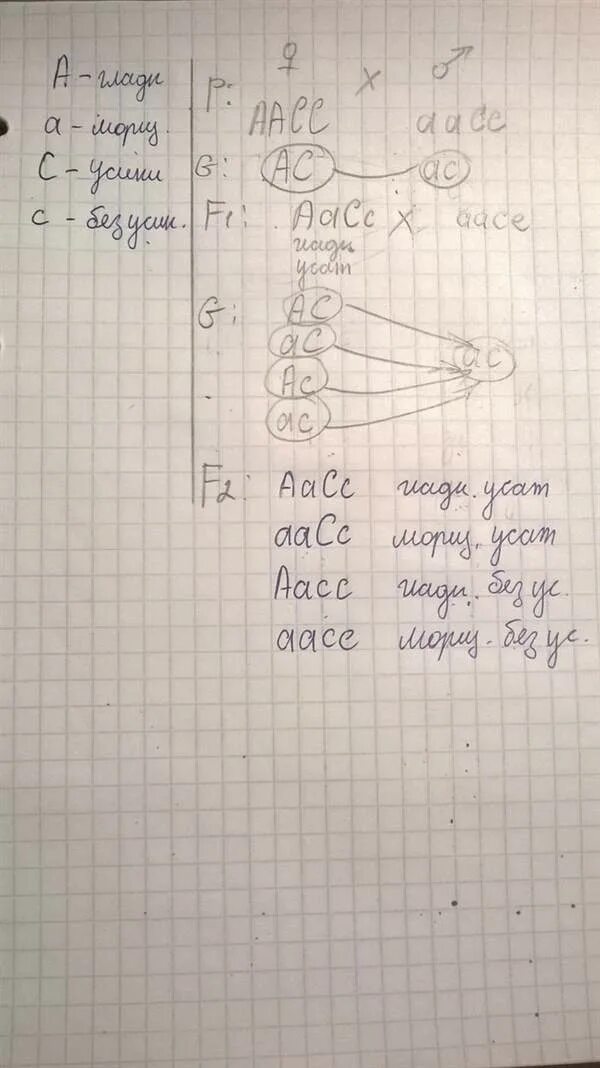 А - гладк
а - морщ.
С - усики
с - без усик.
P: ♀ x ♂
AACC aacc
G: AC ac
F1: AaCc x aacc
гладк
усат
G: AC
aC
Ac
ac
ac
F2: AaCc гладк. усат
aaCc морщ. усат
Aacc гладк. без ус.
aacc морщ. без ус.